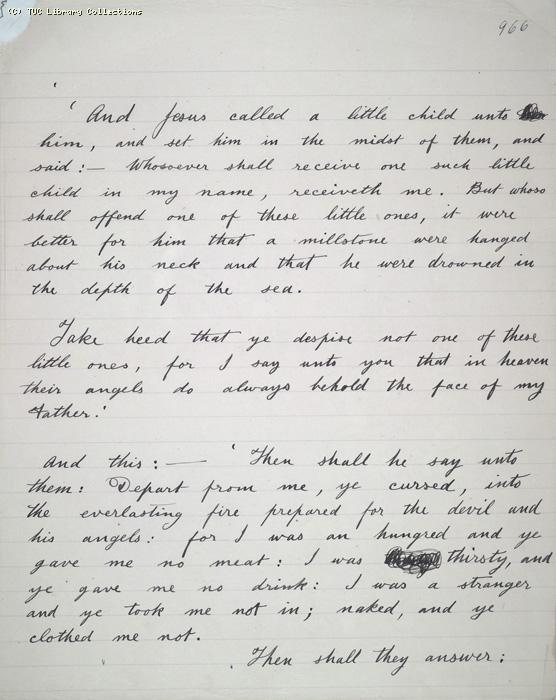 (C) TUC Library Collections
966
' And Jesus called a little child unto
him, and set him in the midst of them, and
said:— Whosoever shall receive one such little
child in my name, receiveth me. But whoso
shall offend one of these little ones, it were
better for him that a millstone were hanged
about his neck and that he were drowned in
the depth of the sea.
Take heed that ye despise not one of these
little ones, for I say unto you that in heaven
their angels do always behold the face of my
Father.'
And this: — 'Then shall he say unto
them: Depart from me, ye cursed, into
the everlasting fire prepared for the devil and
his angels: for I was an hungred and ye
gave me no meat: I was thirsty, and
ye gave me no drink: I was a stranger
and ye took me not in; naked, and ye
clothed me not.
Then shall they answer: